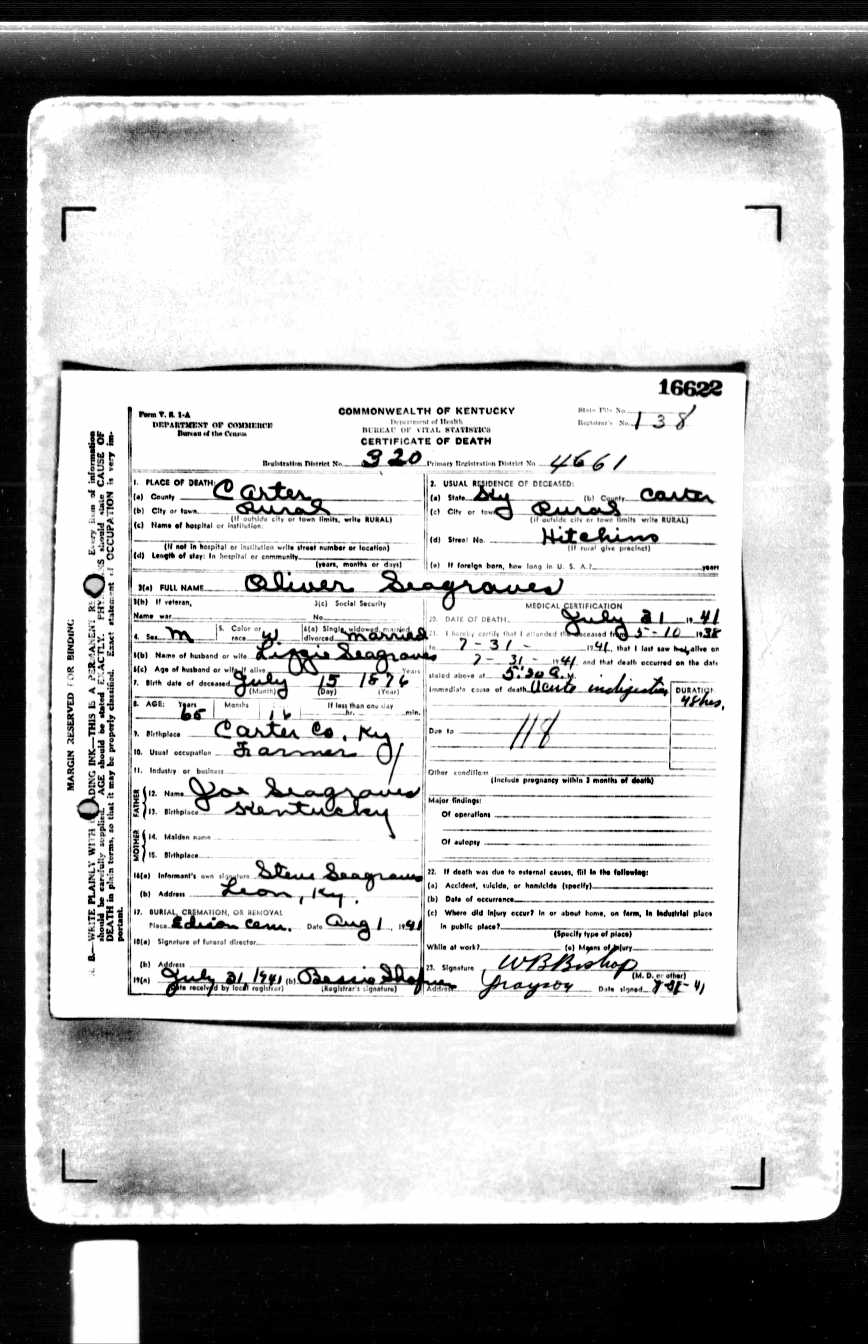 16622
Form V. S. 1-A
DEPARTMENT OF COMMERCE
Bureau of the Census
COMMONWEALTH OF KENTUCKY
Department of Health
BUREAU OF VITAL STATISTICS
CERTIFICATE OF DEATH
State File No.
Registrar's No. 138
Registration District No. 320 Primary Registration District No. 4661
MARGIN RESERVED FOR BINDING
B.—WRITE PLAINLY WITH DING INK—THIS IS A PERMANENT RE Every item of information
should be carefully supplied. AGE should be stated EXACTLY. PHY S should state CAUSE OF
DEATH in plain terms, so that it may be properly classified. Exact statement of OCCUPATION is very im-
portant.
1. PLACE OF DEATH:
(a) County Carter
(b) City or town Rural
(If outside city or town limits, write RURAL)
(c) Name of hospital or institution:
(If not in hospital or institution write street number or location)
(d) Length of stay: In hospital or community
(years, months or days)
2. USUAL RESIDENCE OF DECEASED:
(a) State Ky (b) County Carter
(c) City or town Rural
(If outside city or town limits write RURAL)
(d) Street No. Hitchins
(If rural give precinct)
(e) If foreign born, how long in U. S. A.? years
3(a) FULL NAME Oliver Seagraves
3(b) If veteran, 3(c) Social Security
Name war No.
4. Sex M 5. Color or race W 6(a) Single, widowed, married, divorced married
6(b) Name of husband or wife Lizzie Seagraves
6(c) Age of husband or wife if alive Years
7. Birth date of deceased July 15 1876
(Month) (Day) (Year)
8. AGE: Years Months If less than one day
65 16 hr. min.
9. Birthplace Carter Co, Ky
10. Usual occupation Farmer
11. Industry or business
FATHER
12. Name Joe Seagraves
13. Birthplace Kentucky
MOTHER
14. Maiden name
15. Birthplace
16(a) Informant's own signature Steve Seagraves
(b) Address Leon, Ky.
17. BURIAL, CREMATION, OR REMOVAL
Place Cem. Date Aug 1, 1941
18(a) Signature of funeral director
(b) Address
19(a) July 31 1941 (b) Bessie
(Date received by local registrar) (Registrar's signature)
MEDICAL CERTIFICATION
20. DATE OF DEATH: July 31 1941
21. I hereby certify that I attended the deceased from 5-10 1938
to 7-31- 1941, that I last saw h alive on
7-31- 1941, and that death occurred on the date
stated above at 5:30 A. M.
Immediate cause of death Acute indigestion DURATION
48 hrs.
Due to
118
Other conditions
(Include pregnancy within 3 months of death)
Major findings:
Of operations
Of autopsy
22. If death was due to external causes, fill in the following:
(a) Accident, suicide, or homicide (specify)
(b) Date of occurrence
(c) Where did injury occur? In or about home, on farm, in industrial place
in public place?
(Specify type of place)
While at work? (e) Means of injury
23. Signature WB Bishop
(M. D. or other)
Address Grayson Date signed